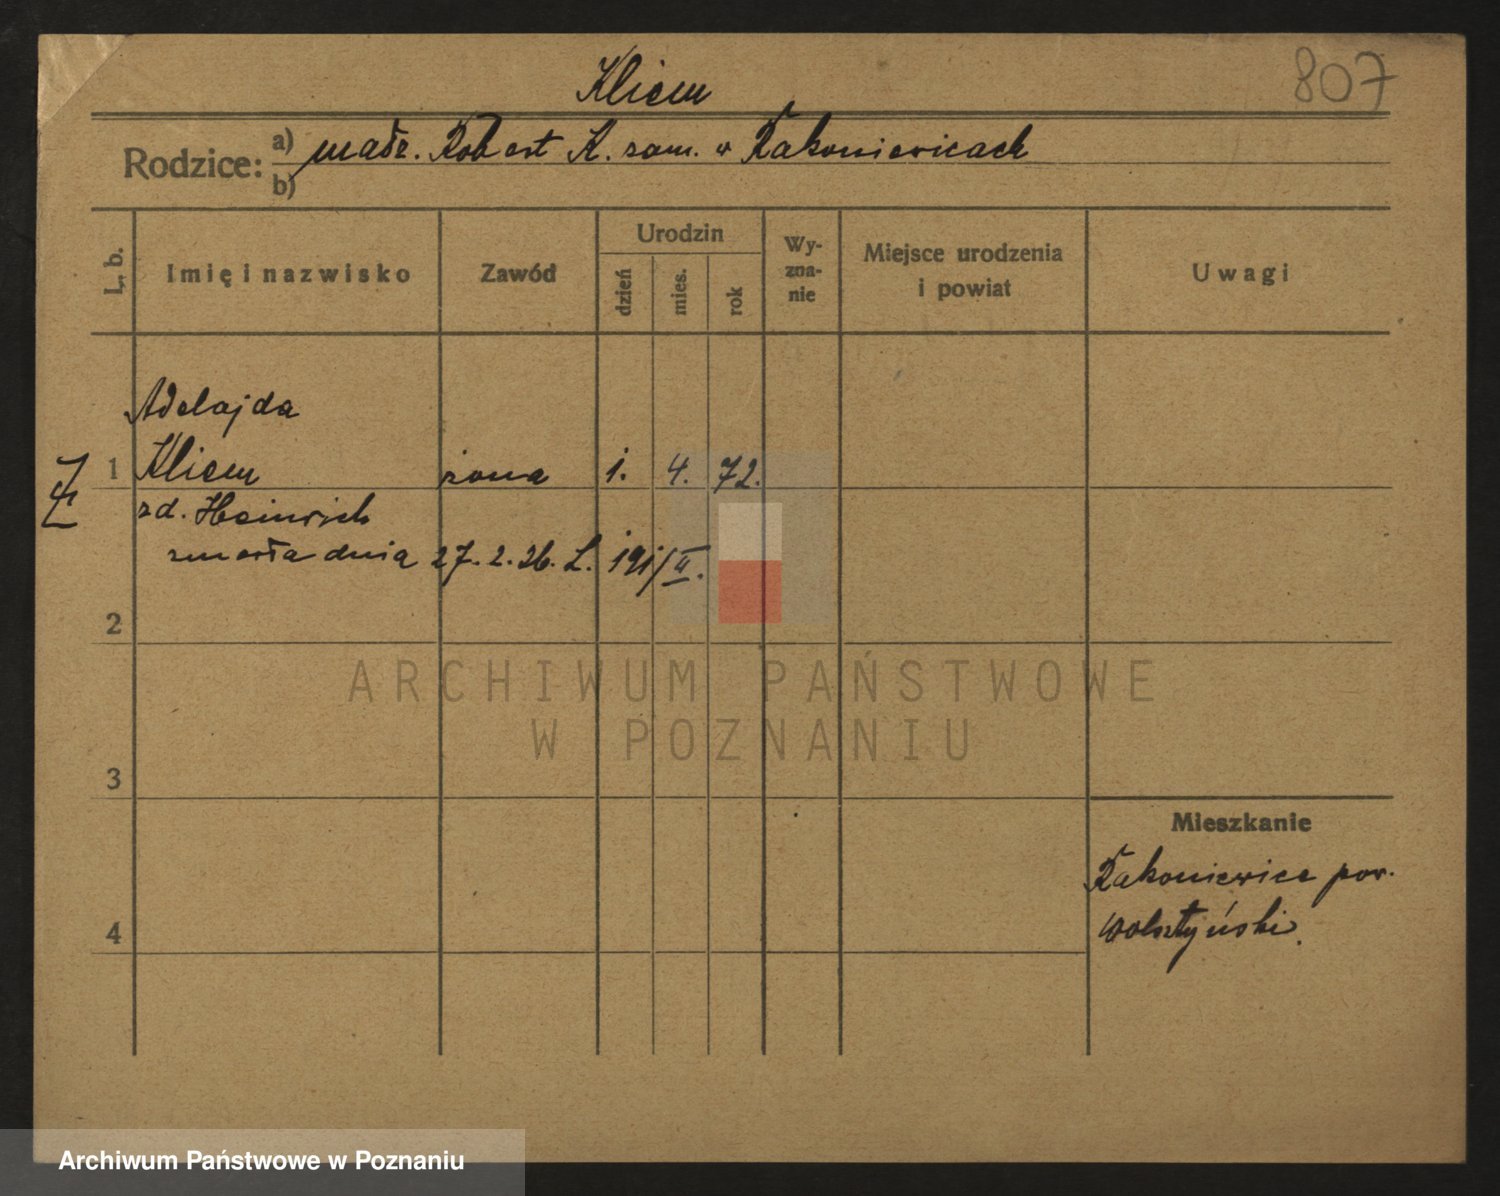 807
Kliem
Rodzice: a) małż. Robert K. zam. w Rakoniewicach
b)
L. b.
Imię i nazwisko
Zawód
Urodzin
dzień
mies.
rok
Wy-
zna-
nie
Miejsce urodzenia
i powiat
Uwagi
Adelajda
1 Kliem żona 1. 4. 72.
zd. Heinrich
zmarła dnia 27. 2. 26. L. 191/II.
2
ARCHIWUM PAŃSTWOWE
W POZNANIU
3
Mieszkanie
Rakoniewice pow.
wolsztyński.
4
Archiwum Państwowe w Poznaniu